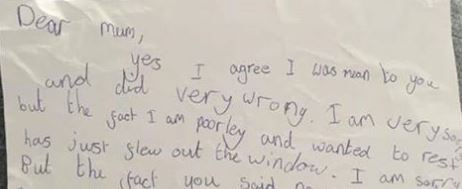 Dear mum,
yes I agree I was mean to you
and did very wrong. I am very so
but the fact I am poorley and wanted to rest
has just flew out the window. I am sorry
But the fact you said no